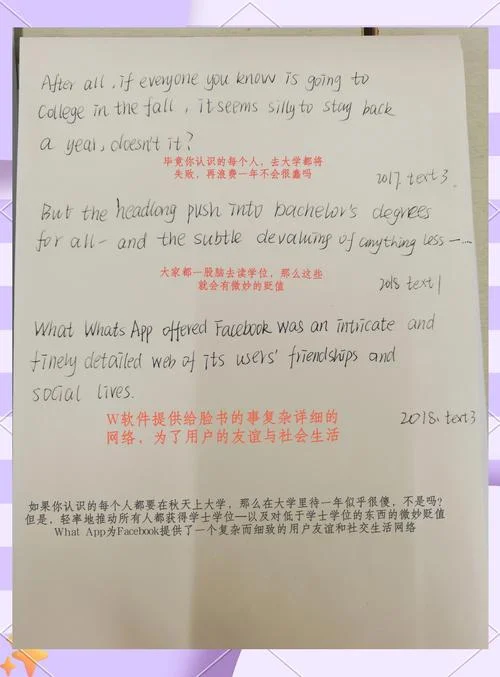 After all, if everyone you know is going to
College in the fall, it seems silly to stay back
a year, doesn't it?
毕竟你认识的每个人，去大学都将
失败，再浪费一年不会很蠢吗
2017. text 3.
But the headlong push into bachelor's degrees
for all - and the subtle devaluing of anything less -...
大家都一股脑去读学位，那么这些
就会有微妙的贬值
2018 text 1
What Whats App offered Facebook was an intricate and
finely detailed web of its users' friendships and
social lives.
W软件提供给脸书的事复杂详细的
网络，为了用户的友谊与社会生活
2018. text 3
如果你认识的每个人都要在秋天上大学，那么在大学里待一年似乎很傻，不是吗？
但是，轻率地推动所有人都获得学士学位—以及对低于学士学位的东西的微妙贬值
What App为Facebook提供了一个复杂而细致的用户友谊和社交生活网络